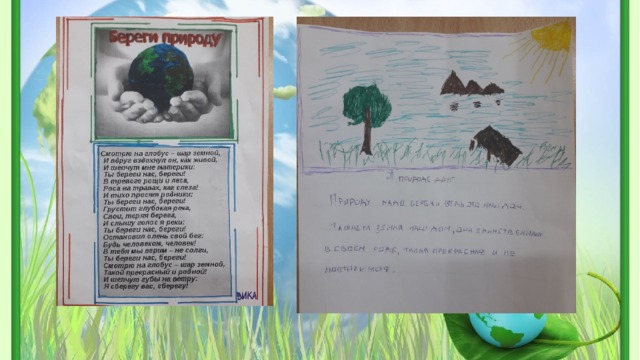 Береги природу
Смотрю на глобус – шар земной,
И вдруг вздохнул он, как живой,
И шепчут мне материки:
Ты береги нас, береги!
В тревоге рощи и леса,
Роса на травах, как слеза!
И тихо просят родники:
Ты береги нас, береги!
Грустит глубокая река,
Свои, теряя берега,
И слышу голос я реки:
Ты береги нас, береги!
Остановил олень свой бег:
Будь человеком, человек!
В тебя мы верим – не солги,
Ты береги нас, береги!
Смотрю на глобус – шар земной,
Такой прекрасный и родной!
И шепчут губы на ветру:
Я сберегу вас, сберегу!
ВИКА
Я природе друг
Природу надо беречь ведь это наш дом.
планета земля наш дом, она единственная
в своём роде, такая прекрасная и